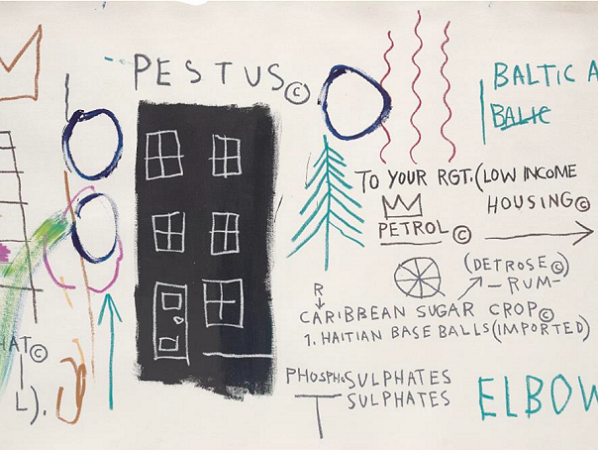 PESTUS©
BALTIC A
BALTIC
TO YOUR RGT. (LOW INCOME
HOUSING©
PETROL ©
(DETROSE©)
-RUM-
R
CARIBBEAN SUGAR CROP©
1. HAITIAN BASE BALLS (IMPORTED)
HAT©
L).
PHOSPH SULPHATES
SULPHATES
ELBOW